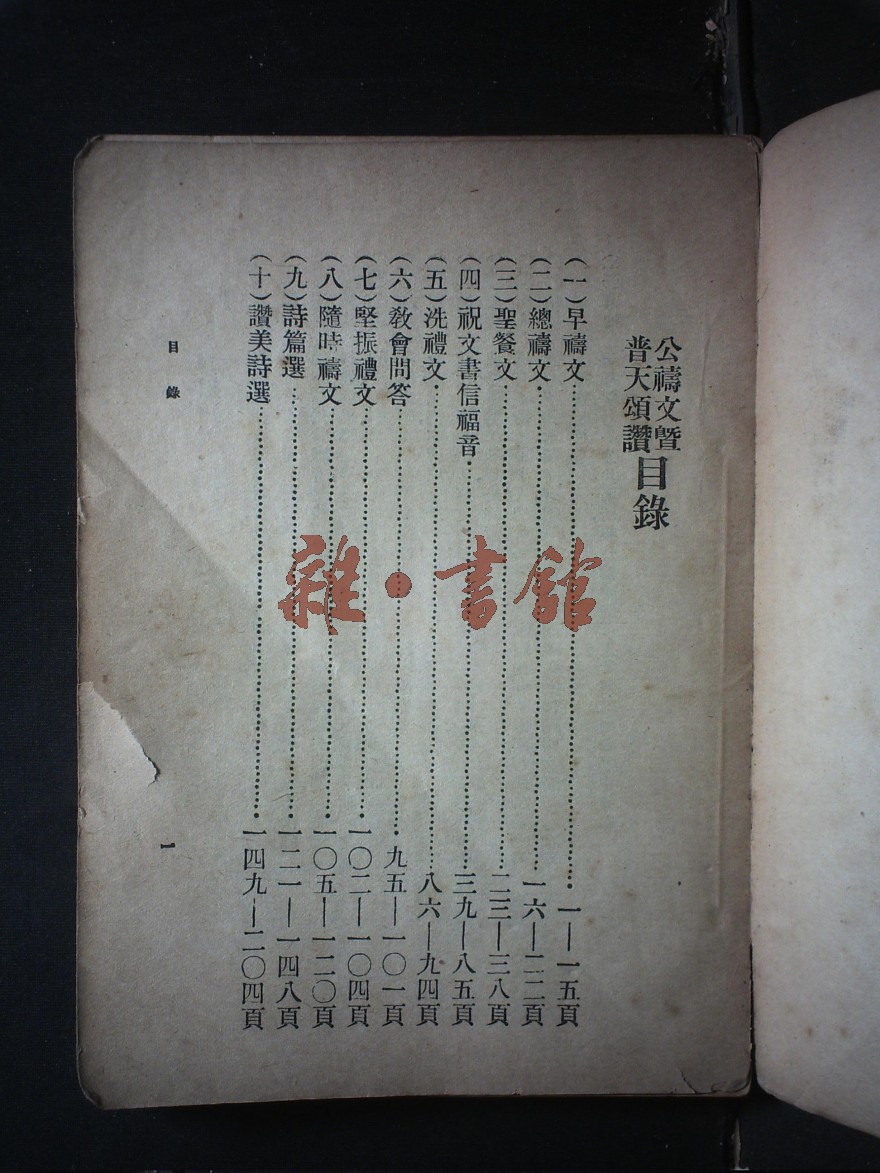 公禱文暨
普天頌讚
目錄
(一)早禱文⋯⋯一—一五頁
(二)總禱文⋯⋯一六—二二頁
(三)聖餐文⋯⋯二三—三八頁
(四)祝文書信福音⋯⋯三九—八五頁
(五)洗禮文⋯⋯八六—九四頁
(六)教會問答⋯⋯九五—一〇一頁
(七)堅振禮文⋯⋯一〇二—一〇四頁
(八)隨時禱文⋯⋯一〇五—一二〇頁
(九)詩篇選⋯⋯一二一—一四八頁
(十)讚美詩選⋯⋯一四九—二〇四頁
目錄
一
雜·書館